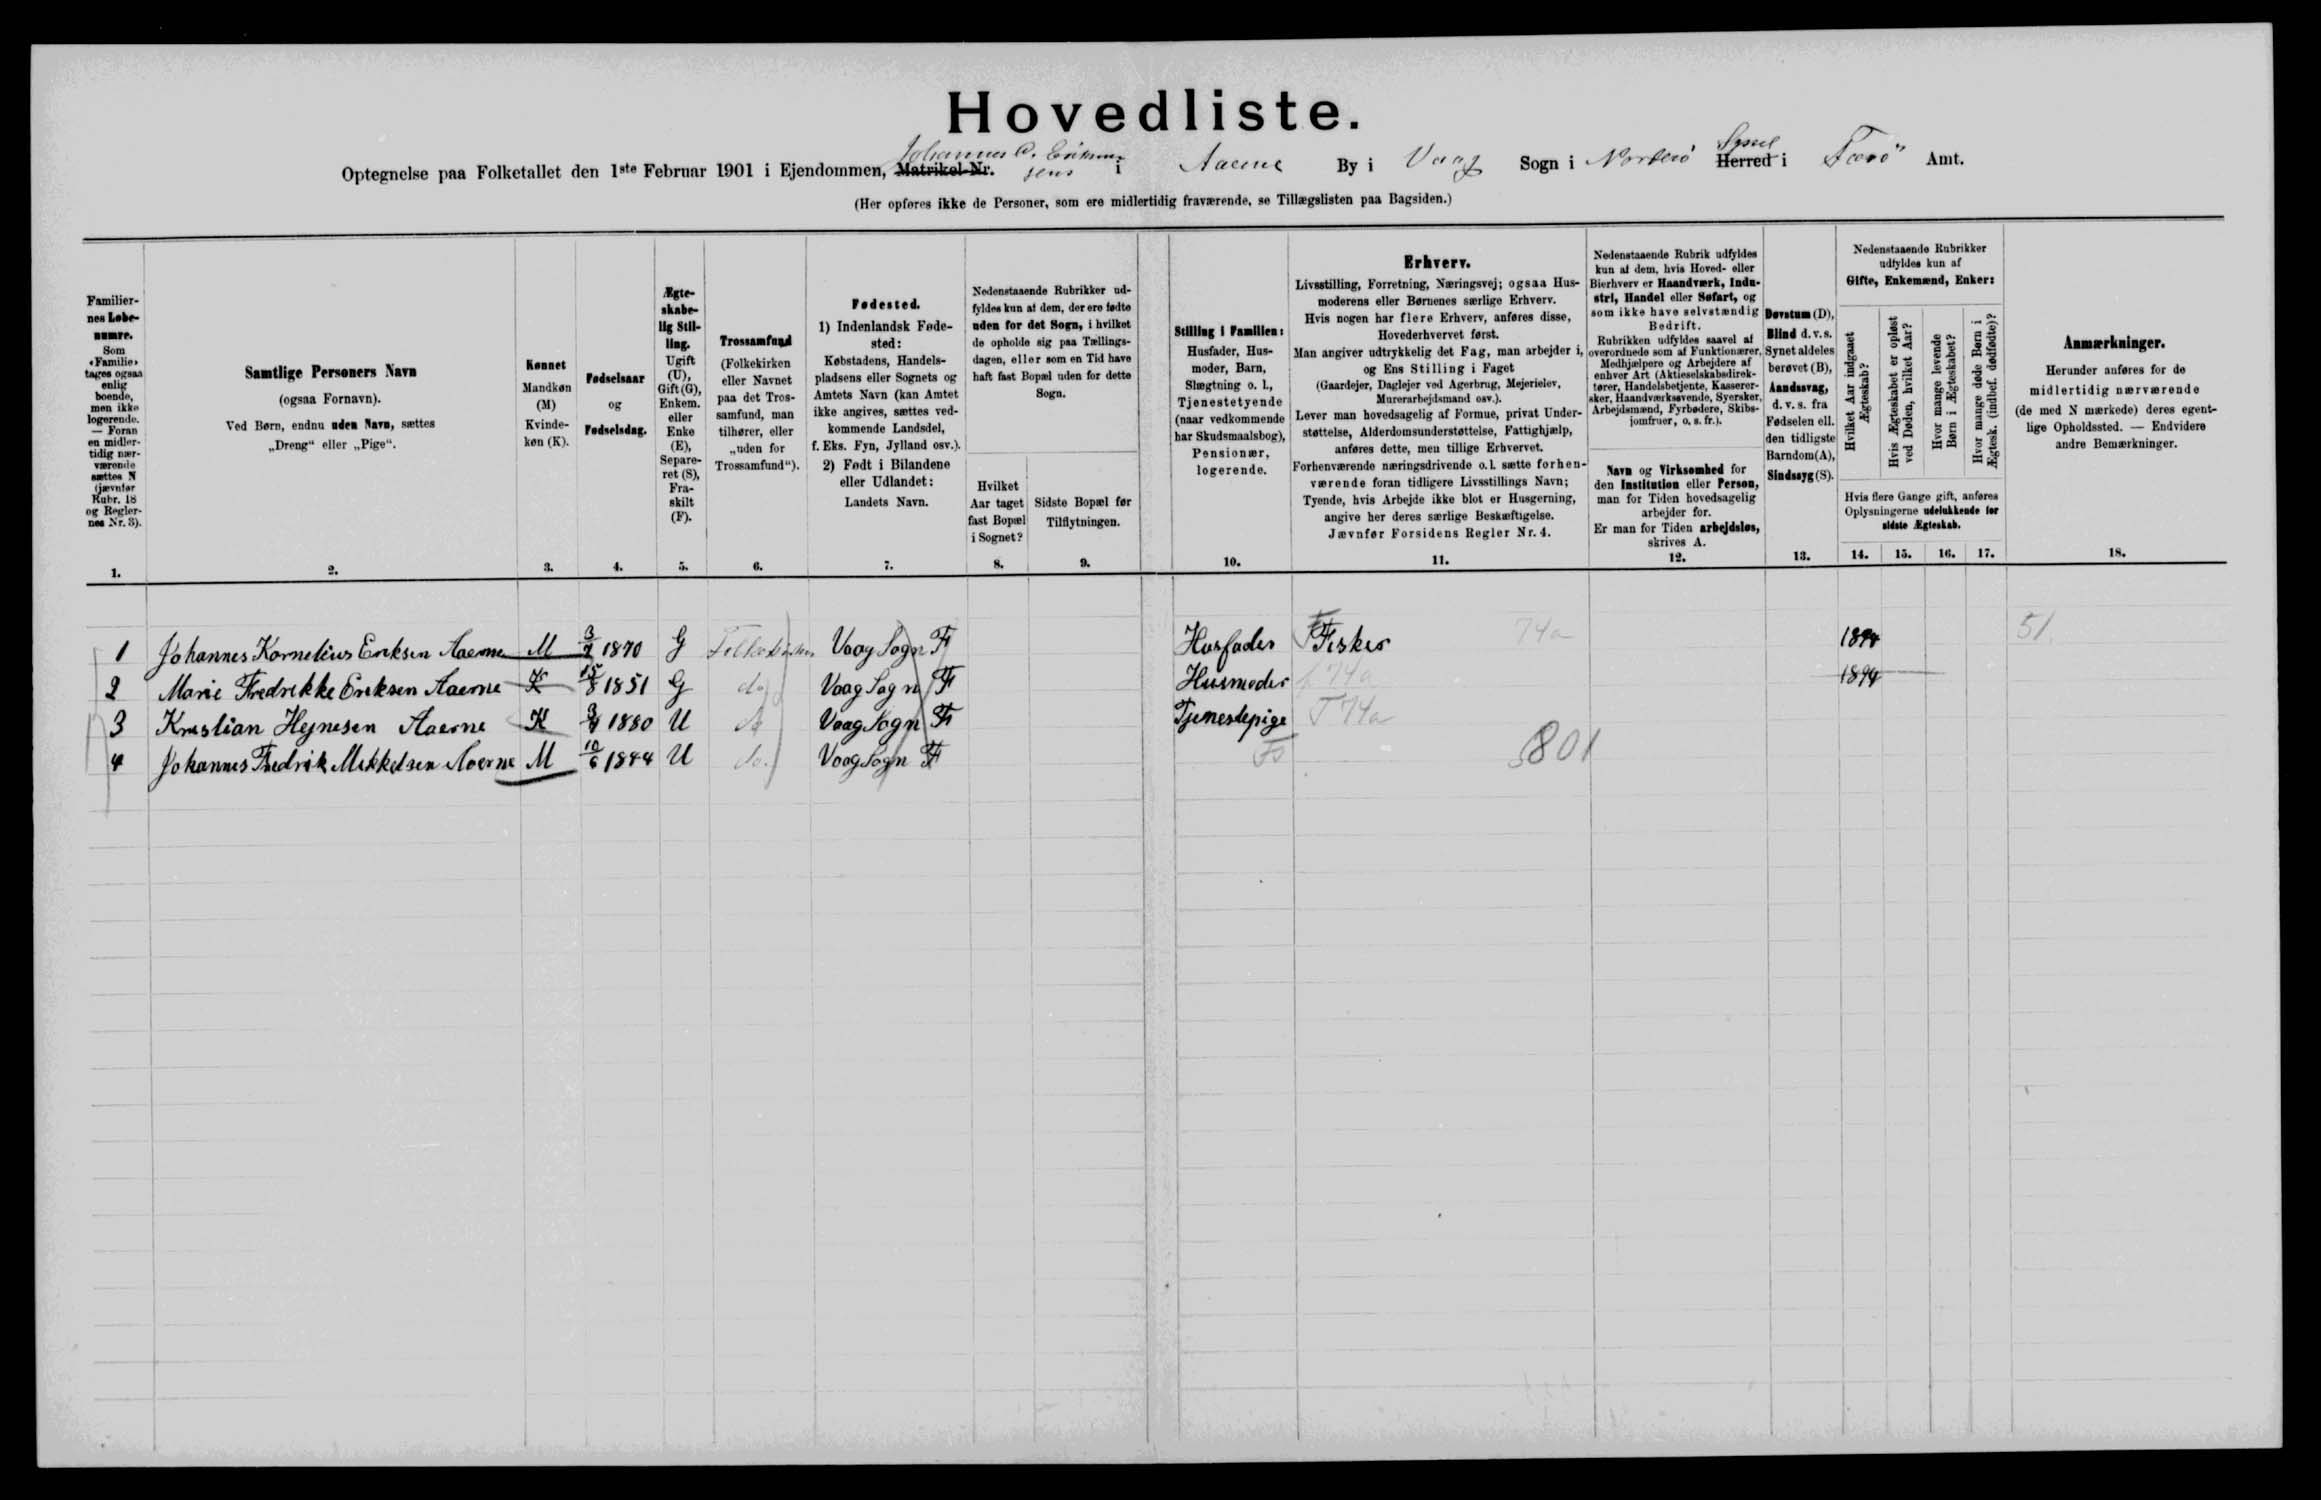 Hovedliste.
Optegnelse paa Folketallet den 1ste Februar 1901 i Ejendommen, Matrikel-Nr. Johannes C. Eriksen sens i Aaerne By i Vaag Sogn i Norderö Herred Syssel i Færö Amt.
(Her opføres ikke de Personer, som ere midlertidig fraværende, se Tillægslisten paa Bagsiden.)
Familier-
nes Løbe-
numre.
Som
«Familie»
tages ogsaa
enlig
boende,
men ikke
logerende.
— Foran
en midler-
tidig nær-
værende
sættes N
(jævnfør
Rubr. 18
og Regler-
nes Nr. 3).
1.
Samtlige Personers Navn
(ogsaa Fornavn).
Ved Børn, endnu uden Navn, sættes
„Dreng“ eller „Pige“.
2.
Kønnet
Mandkøn
(M)
Kvinde-
køn (K).
3.
Fødselsaar
og
Fødselsdag.
4.
Ægte-
skabe-
lig Stil-
ling.
Ugift
(U),
Gift (G),
Enkem.
eller
Enke
(E),
Separe-
ret (S),
Fra-
skilt
(F).
5.
Trossamfund
(Folkekirken
eller Navnet
paa det Tros-
samfund, man
tilhører, eller
„uden for
Trossamfund“).
6.
Fødested.
1) Indenlandsk Føde-
sted:
Købstadens, Handels-
pladsens eller Sognets og
Amtets Navn (kan Amtet
ikke angives, sættes ved-
kommende Landsdel,
f. Eks. Fyn, Jylland osv.).
2) Født i Bilandene
eller Udlandet:
Landets Navn.
7.
Nedenstaaende Rubrikker ud-
fyldes kun af dem, der ere fødte
uden for det Sogn, i hvilket
de opholde sig paa Tællings-
dagen, eller som en Tid have
haft fast Bopæl uden for dette
Sogn.
Hvilket
Aar taget
fast Bopæl
i Sognet?
8.
Sidste Bopæl før
Tilflytningen.
9.
Stilling i Familien:
Husfader, Hus-
moder, Barn,
Slægtning o. l.,
Tjenestetyende
(naar vedkommende
har Skudsmaalsbog),
Pensionær,
logerende.
10.
Erhverv.
Livsstilling, Forretning, Næringsvej; ogsaa Hus-
moderens eller Børnenes særlige Erhverv.
Hvis nogen har flere Erhverv, anføres disse,
Hovederhvervet først.
Man angiver udtrykkelig det Fag, man arbejder i,
og Ens Stilling i Faget
(Gaardejer, Daglejer ved Agerbrug, Mejerielev,
Murerarbejdsmand osv.).
Lever man hovedsagelig af Formue, privat Under-
støttelse, Alderdomsunderstøttelse, Fattighjælp,
anføres dette, men tillige Erhvervet.
Forhenværende næringsdrivende o. l. sætte forhen-
værende foran tidligere Livsstillings Navn;
Tyende, hvis Arbejde ikke blot er Husgerning,
angive her deres særlige Beskæftigelse.
Jævnfør Forsidens Regler Nr. 4.
11.
Nedenstaaende Rubrik udfyldes
kun af dem, hvis Hoved- eller
Bierhverv er Haandværk, Indu-
stri, Handel eller Søfart, og
som ikke have selvstændig
Bedrift.
Rubrikken udfyldes saavel af
overordnede som af Funktionærer,
Medhjælpere og Arbejdere af
enhver Art (Aktieselskabsdirek-
tører, Handelsbetjente, Kasserer-
sker, Haandværkssvende, Syersker,
Arbejdsmænd, Fyrbødere, Skibs-
jomfruer, o. s. fr.).
Navn og Virksomhed for
den Institution eller Person,
man for Tiden hovedsagelig
arbejder for.
Er man for Tiden arbejdsløs,
skrives A.
12.
Døvstum (D),
Blind d. v. s.
Synet aldeles
berøvet (B),
Aandssvag,
d. v. s. fra
Fødselen ell.
den tidligste
Barndom (A),
Sindssyg (S).
13.
Nedenstaaende Rubrikker
udfyldes kun af
Gifte, Enkemænd, Enker:
Hvilket Aar indgaaet
Ægteskab?
Hvis Ægteskabet er opløst
ved Døden, hvilket Aar?
Hvor mange levende
Børn i Ægteskabet?
Hvor mange døde Børn i
Ægtesk. (indbef. dødfødte)?
Hvis flere Gange gift, anføres
Oplysningerne udelukkende for
sidste Ægteskab.
14. 15. 16. 17.
Anmærkninger.
Herunder anføres for de
midlertidig nærværende
(de med N mærkede) deres egent-
lige Opholdssted. — Endvidere
andre Bemærkninger.
18.
1 Johannes Kornelius Eriksen Aaerne M 3/7 1870 G Folkekirken Vaag Sogn F Husfader Fisker 74a 1894 51
2 Marie Fredrikke Eriksen Aaerne K 15/8 1851 G do Vaag Sogn F Husmoder 74a 1894
3 Kristian Hejnesen Aaerne K 1880 U do Vaag Sogn F Tjenestepige T 74a
4 Johannes Fredrik Mikkelsen Aaerne M 10/6 1844 U do. Vaag Sogn F 801